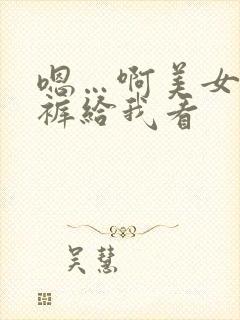 嗯…啊美女
裤给我看
吴慧